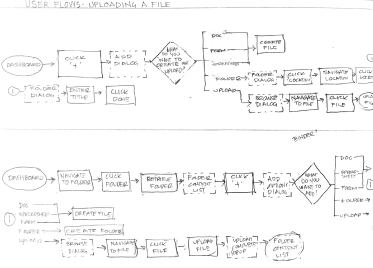 USER FLOWS - UPLOADING A FILE
DASHBOARD
CLICK "+"
ADD DIALOG
WHAT DO YOU WANT TO CREATE OR UPLOAD?
DOC
FORM
CREATE FILE
FOLDER
FOLDER DIALOG
CLICK LOCATION
NAVIGATE LOCATION
UPLOAD
BROWSE DIALOG
NAVIGATE TO FILE
CLICK FILE
1
FOLDER DIALOG
ENTER TITLE
CLICK DONE
DASHBOARD
NAVIGATE TO FOLDER
CLICK FOLDER
FOLDER
FOLDER CONTENT LIST
CLICK "+"
ADD DIALOG
WHAT DO YOU WANT TO ADD?
DOC
FORM
FOLDER
UPLOAD
1
DOC
SPREADSHEET
FORM
CREATE FILE
FOLDER
CREATE FOLDER
UPLOAD
BROWSE DIALOG
NAVIGATE TO FILE
CLICK FILE
UPLOAD FILE
UPLOAD
FOLDER CONTENT LIST